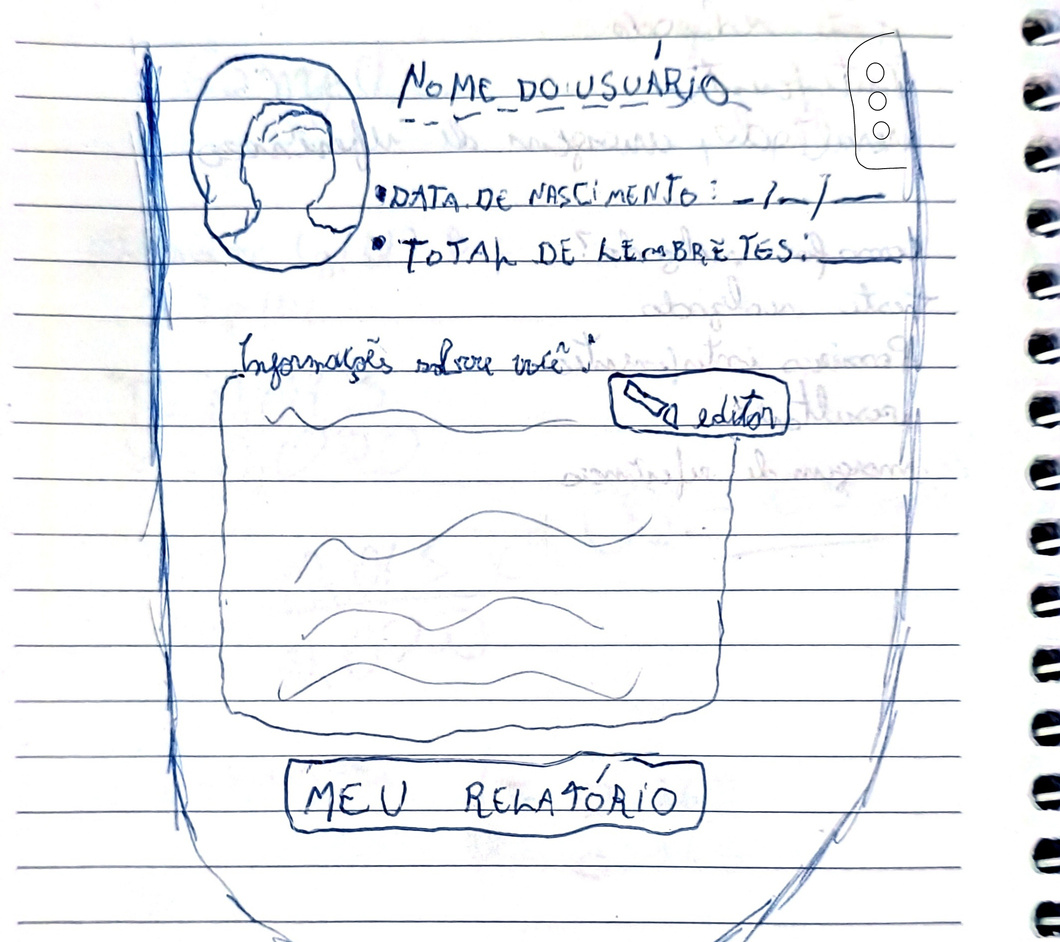 NOME DO USUÁRIO
• DATA DE NASCIMENTO: _/_/_
• TOTAL DE LEMBRETES: ____
Informações sobre você:
editar
MEU RELATÓRIO